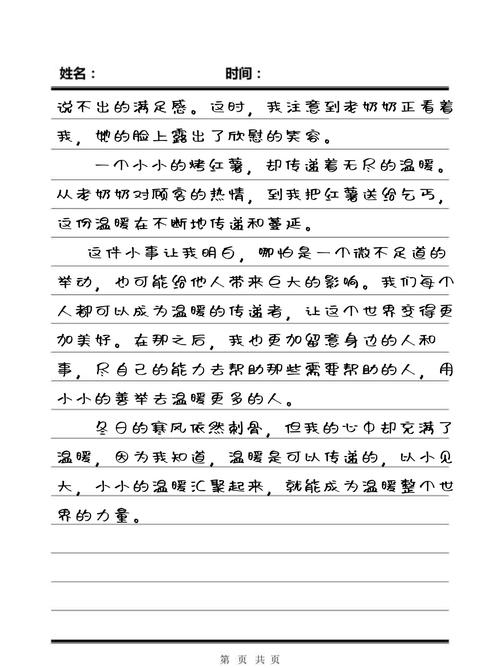 姓名： 时间：
说不出的满足感。这时，我注意到老奶奶正看着
我，她的脸上露出了欣慰的笑容。
一个小小的烤红薯，却传递着无尽的温暖。
从老奶奶对顾客的热情，到我把红薯送给乞丐，
这份温暖在不断地传递和蔓延。
这件小事让我明白，哪怕是一个微不足道的
举动，也可能给他人带来巨大的影响。我们每个
人都可以成为温暖的传递者，让这个世界变得更
加美好。在那之后，我也更加留意身边的人和
事，尽自己的能力去帮助那些需要帮助的人，用
小小的善举去温暖更多的人。
冬日的寒风依然刺骨，但我的心中却充满了
温暖，因为我知道，温暖是可以传递的，以小见
大，小小的温暖汇聚起来，就能成为温暖整个世
界的力量。
第 页 共 页